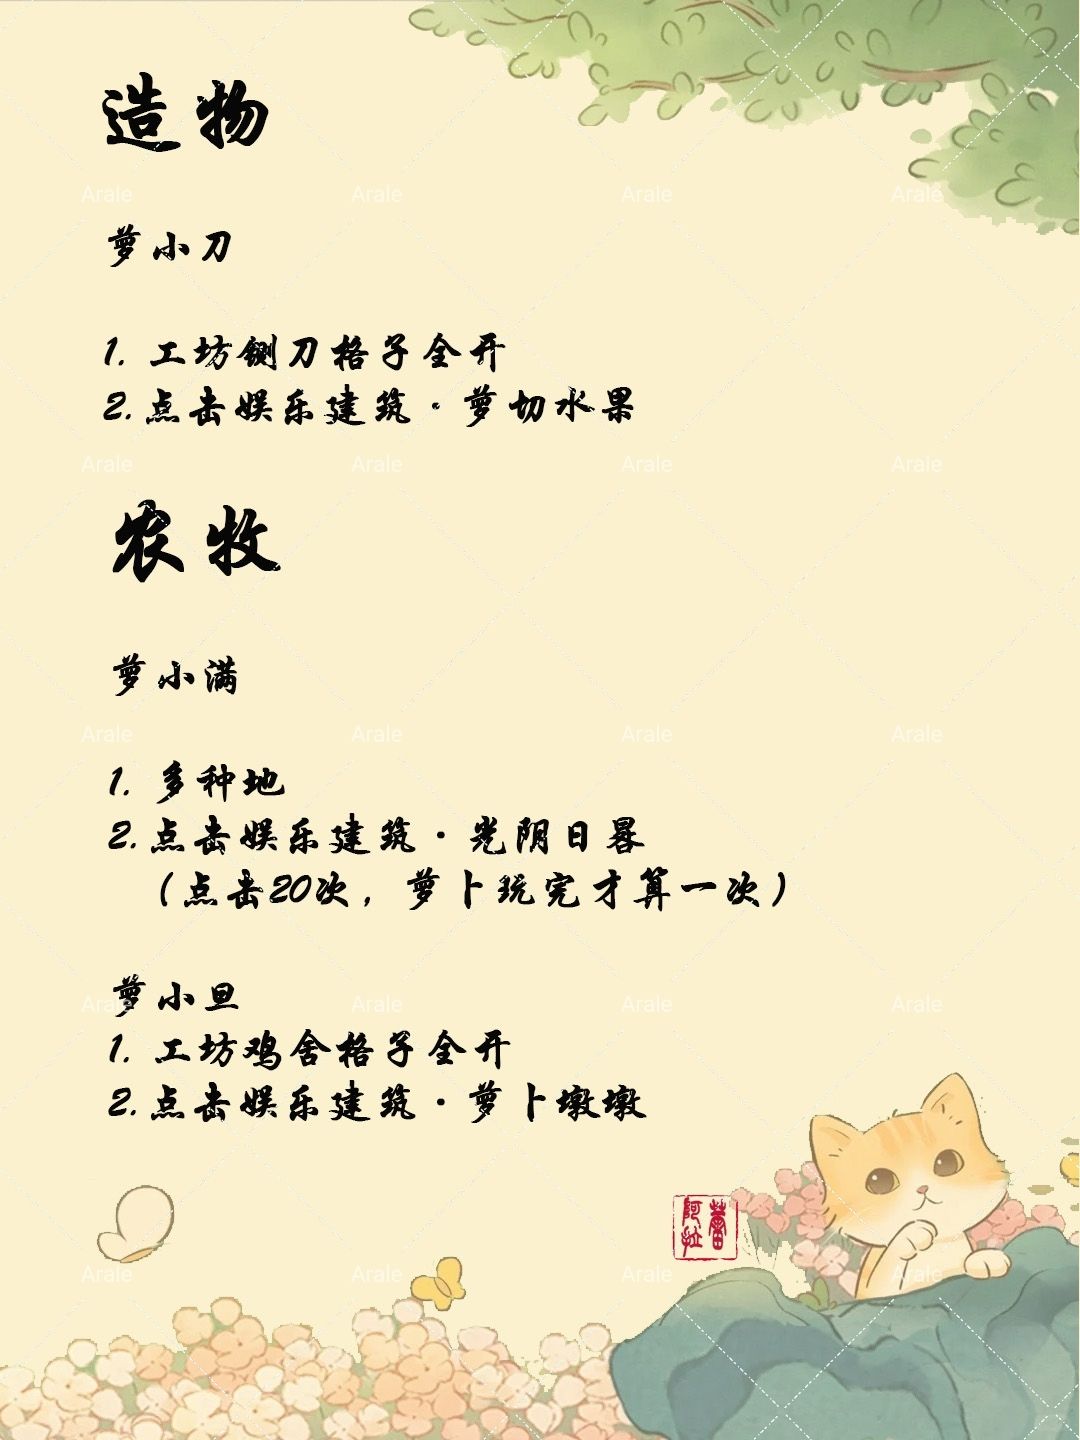 造物
萝小刀
1. 工坊铡刀格子全开
2. 点击娱乐建筑·萝切水果
农牧
萝小满
1. 多种地
2. 点击娱乐建筑·光阴日晷
（点击20次，萝卜玩完才算一次）
萝小旦
1. 工坊鸡舍格子全开
2. 点击娱乐建筑·萝卜墩墩
阿拉蕾
Arale Arale Arale Arale
Arale Arale Arale Arale
Arale Arale Arale Arale
Arale Arale Arale Arale
Arale Arale Arale Arale